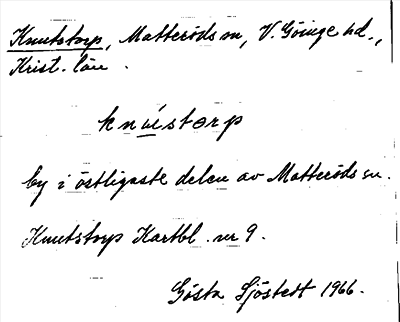 Knutstorp, Matteröds sn, V. Göinge hd.,
Krist. län.
knústorp
by i östligaste delen av Matteröds sn.
Knutstorp Kartbl. nr 9.
Gösta Sjöstedt 1966.